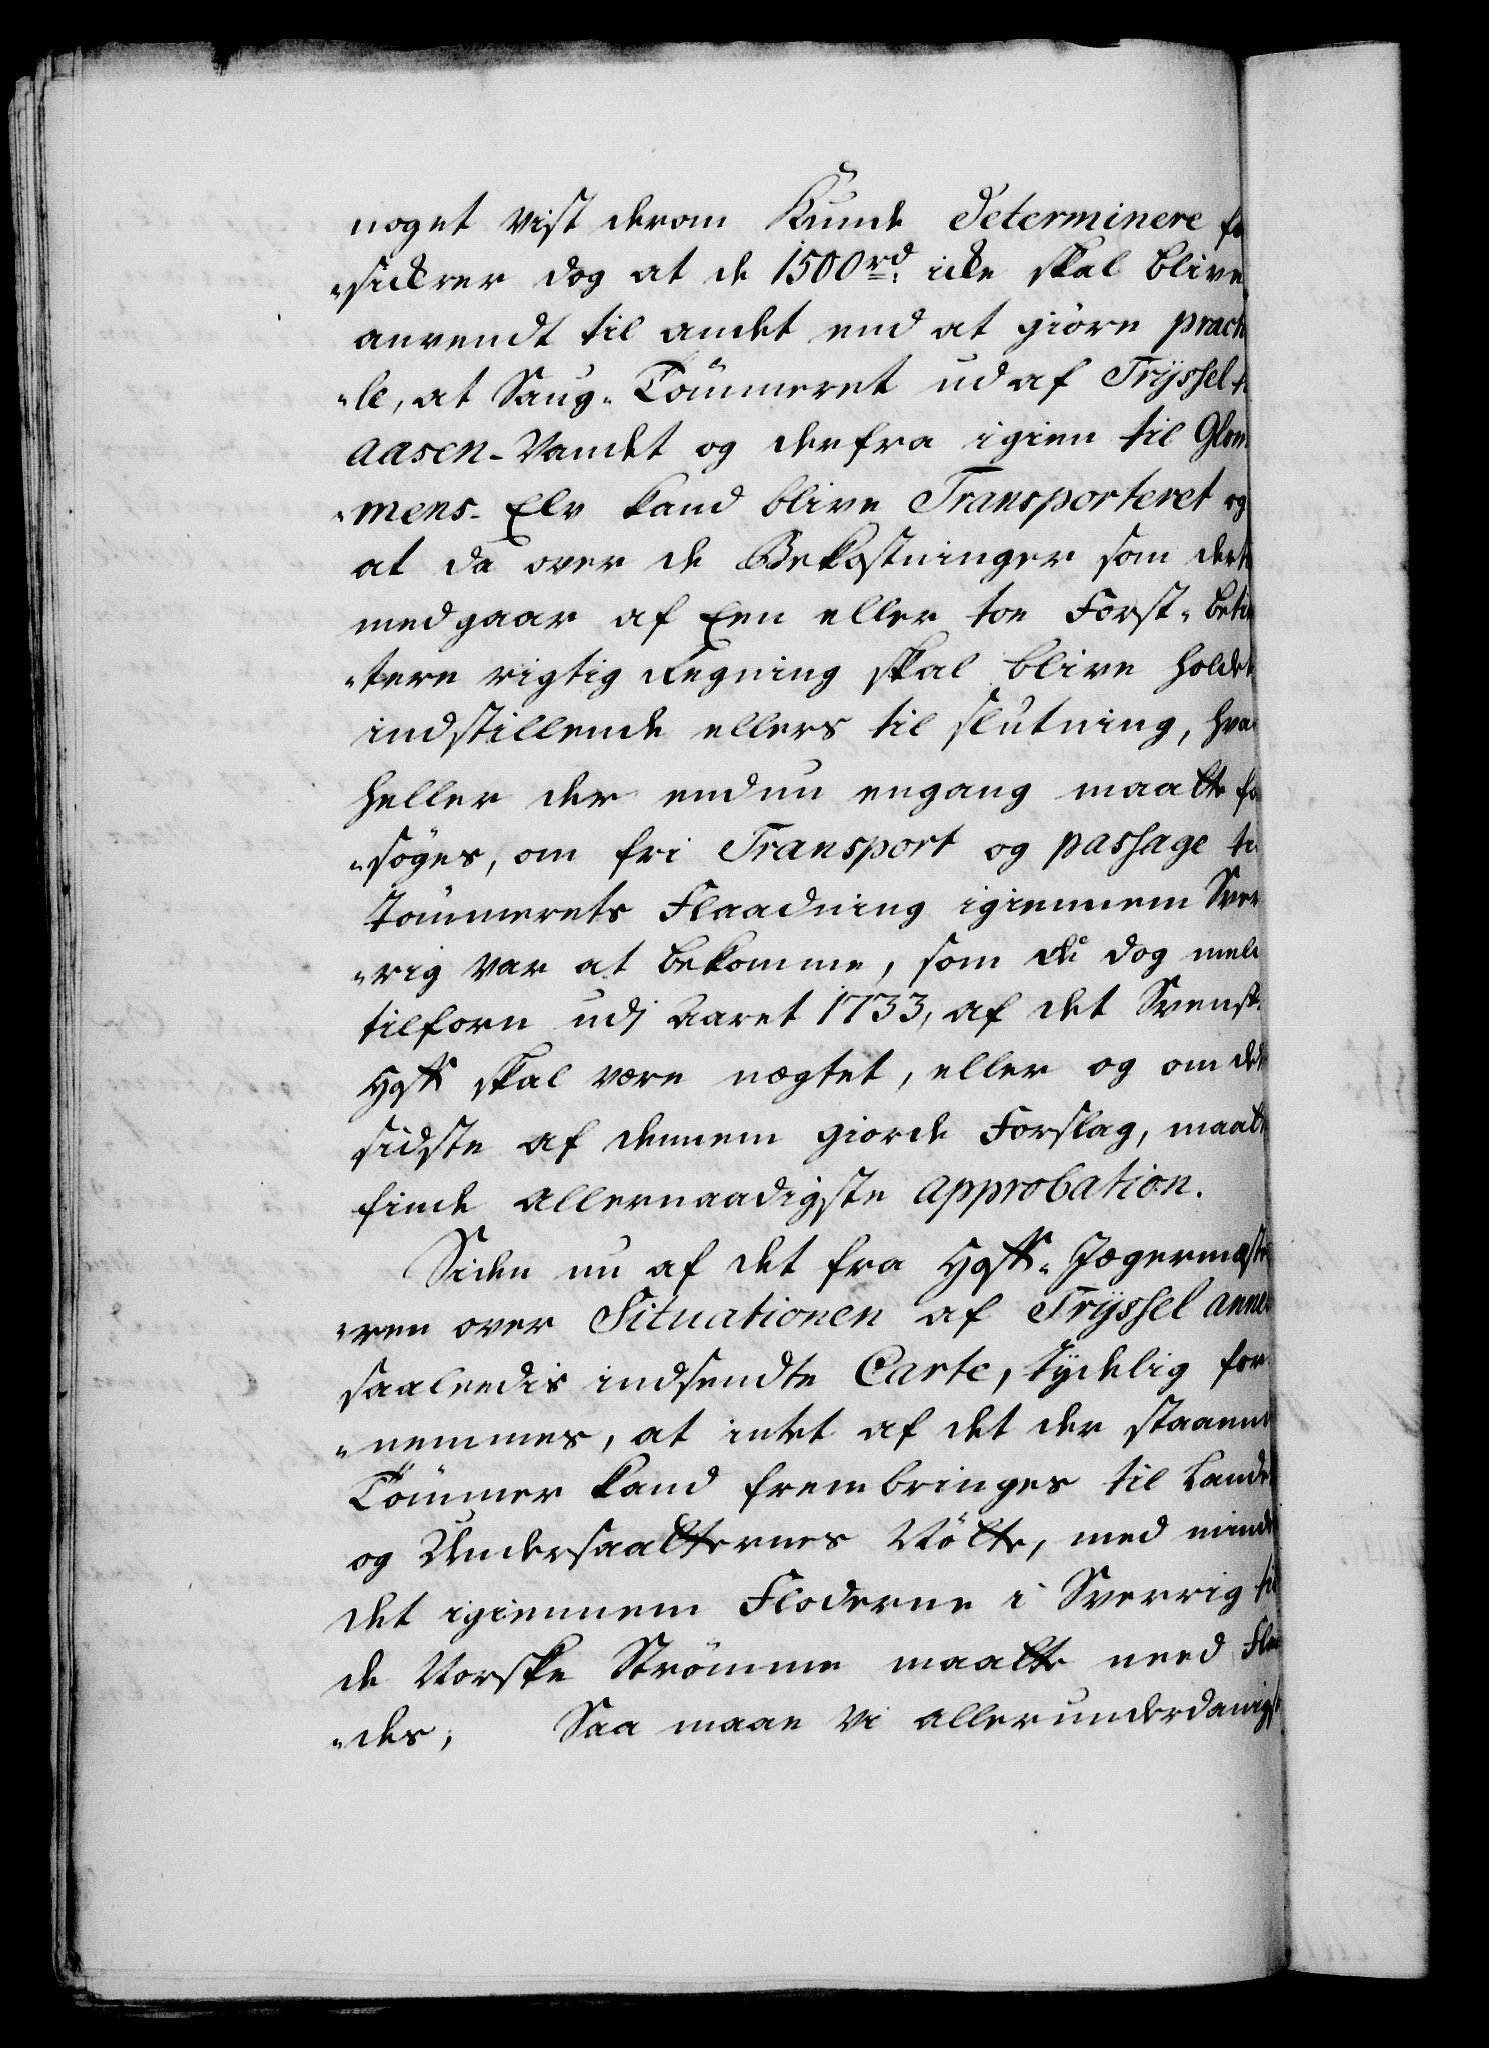 noget vist derom Kunde Determinere fo
"sickrer dog at de 1500 rd. icke skal blive
anvendt til andet end at giöre pract
"le, at Saug-Tömmeret ud af Tryssel t
Aasen-Vandet og derfra igien til Glom
"mens-Elv kand blive Transporteret og
at da over de Bekostninger som dert
medgaar af Een eller toe Forst-Betie
"tere rigtig Regning skal blive holdet
indstillende ellers til slutning, hva
heller der endnu engang maatte fo
"söges, om fri Transport og passage ti
Tömmerets Flaadning igiennem Sver
"rig var at bekomme, som dog
tilforn udj Aaret 1733, af det Svensk
Hoff skal være nægtet, eller og om det
sidste af dennem giorde Forslag, maatt
finde allernaadigste approbation.
Siden nu af det fra Hoff-Jægermest
"ren over Situationen af Tryssel Anne
saaleedis indsendte Carte, tydelig for
"nemmes, at intet af det der staaend
Tömmer kand frembringes til Lande
og Undersaatternes Nötte, med mind
det igiennem Floderne i Sverrig til
de Norske Strömme maatte need Fla
"des, Saa maae Vi allerunderdanigst